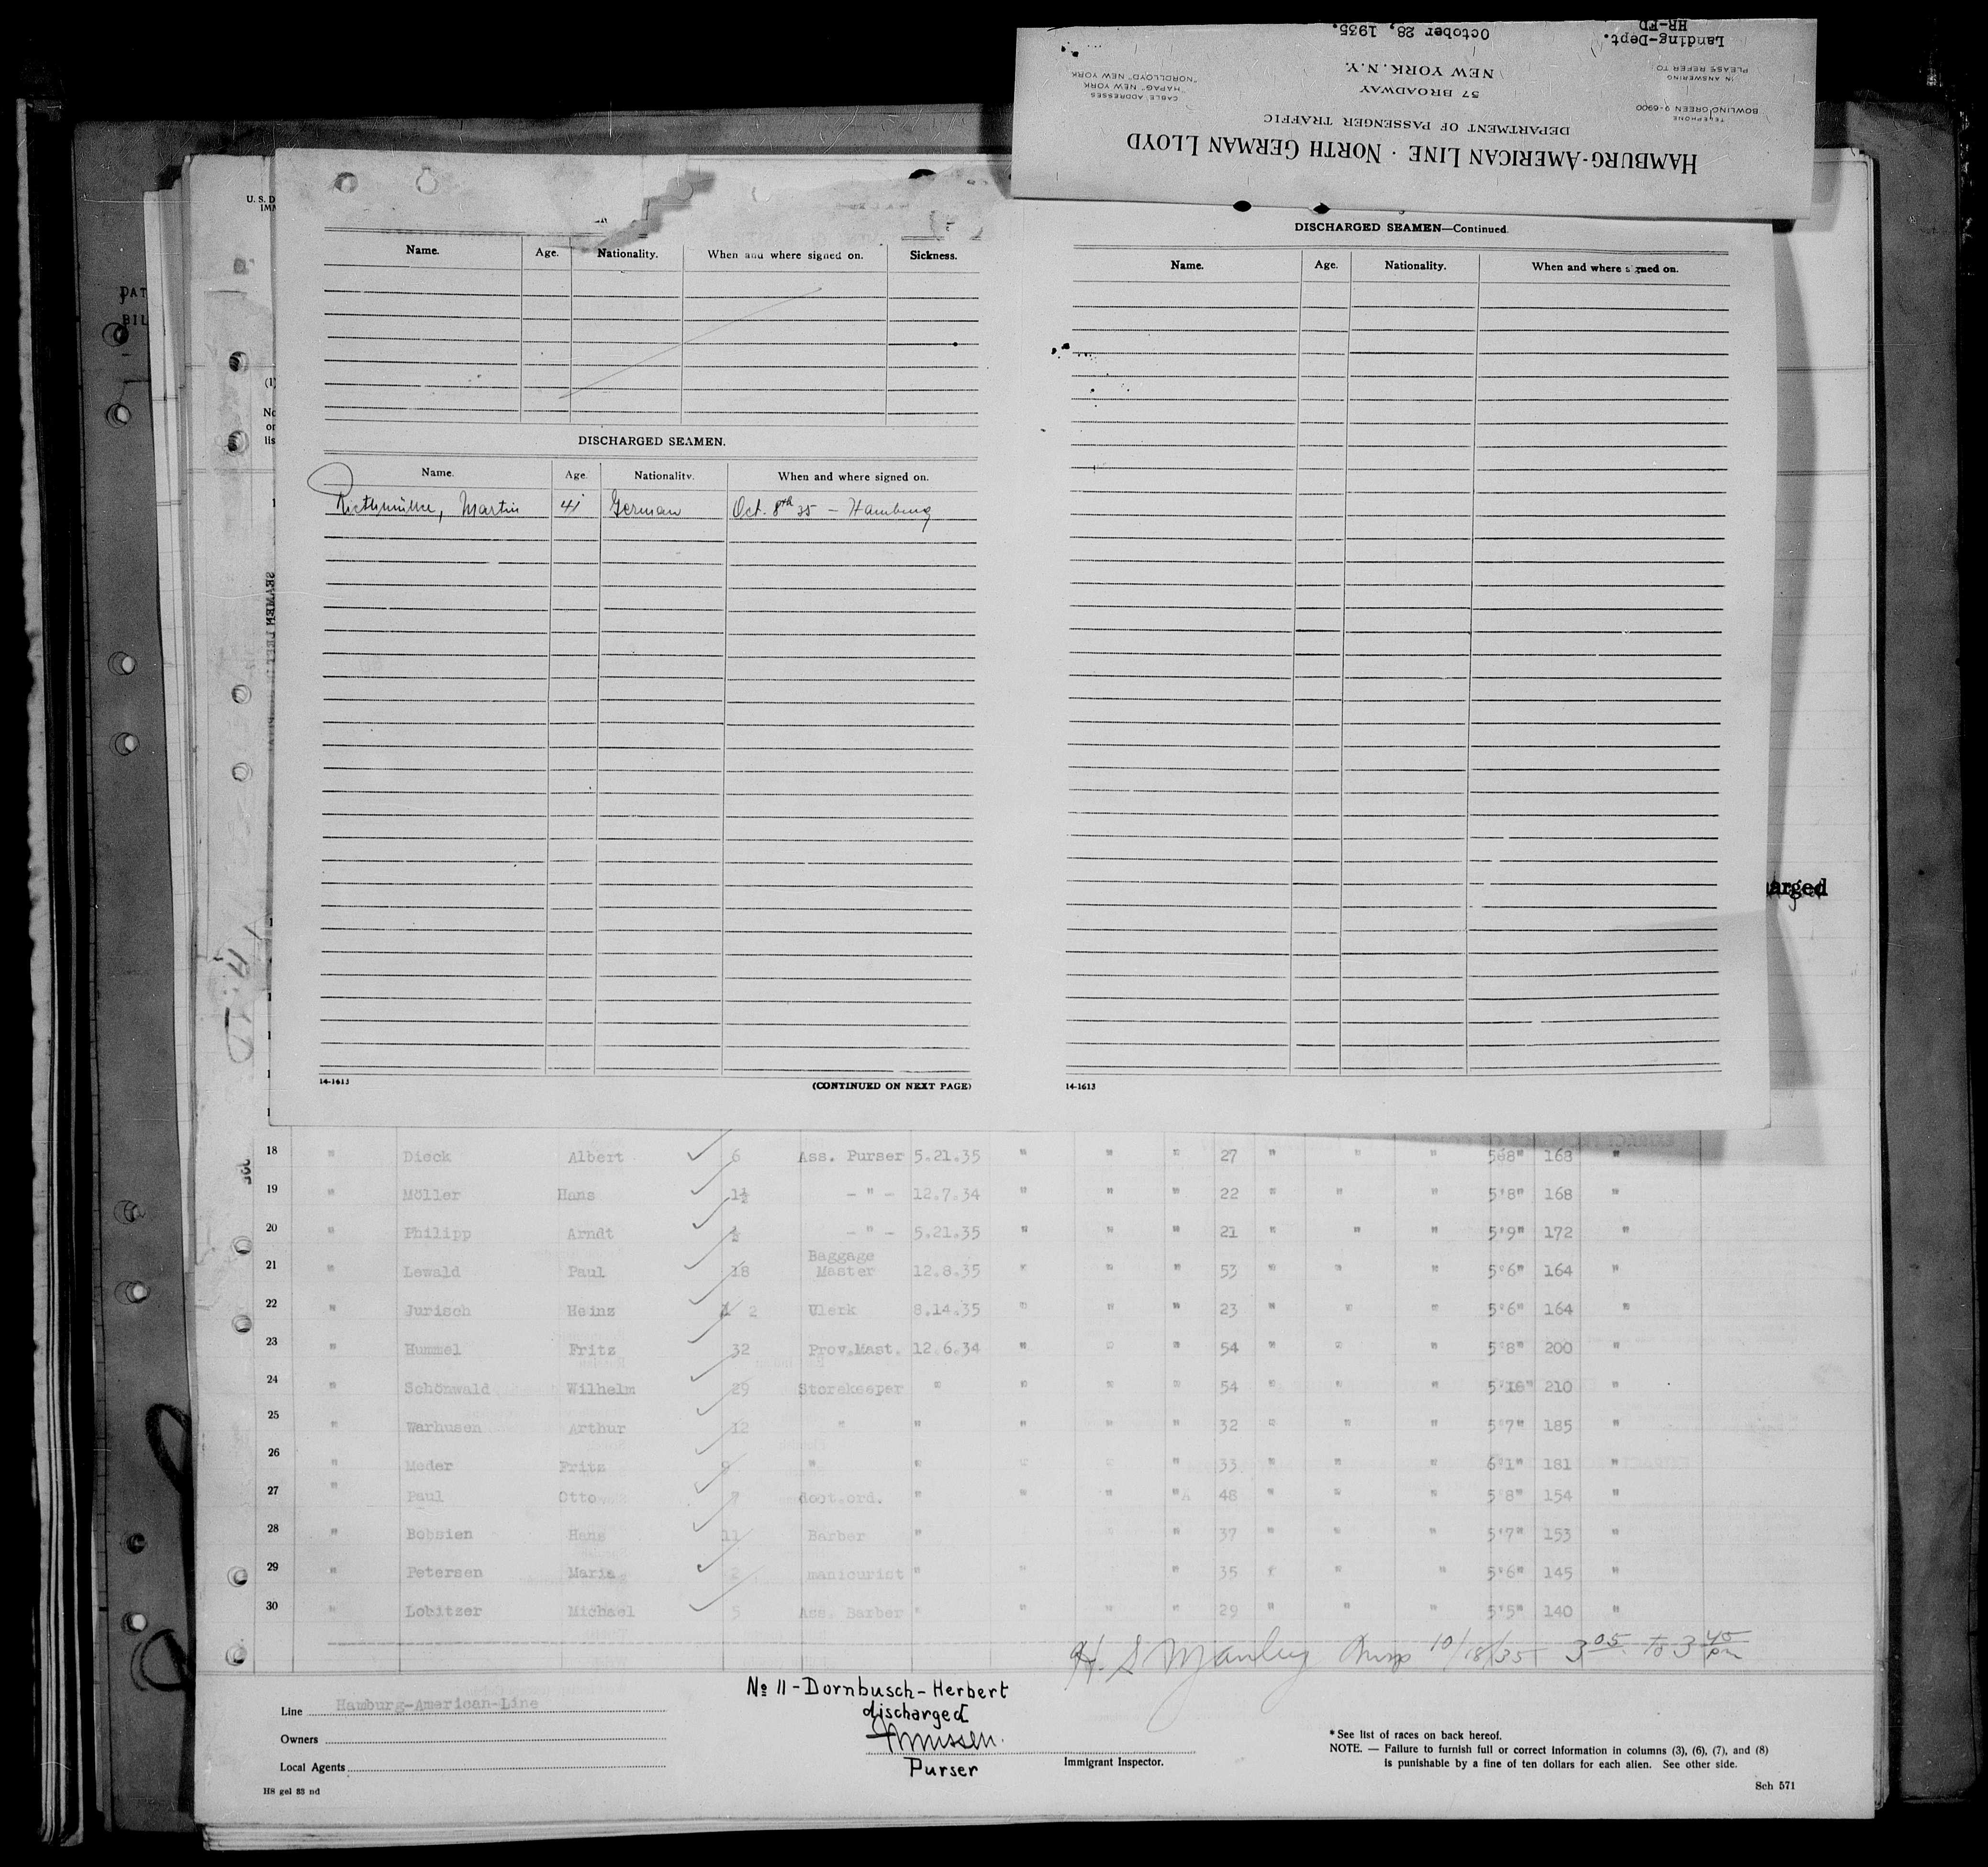 HAMBURG-AMERICAN LINE · NORTH GERMAN LLOYD
DEPARTMENT OF PASSENGER TRAFFIC
57 BROADWAY
NEW YORK, N.Y.
TELEPHONE
BOWLING GREEN 9-6900
IN ANSWERING
PLEASE REFER TO
CABLE ADDRESSES
"HAPAG" NEW YORK
"NORDLLOYD" NEW YORK
Landing-Dept.
HR-FD
October 28, 1935.
U. S. D
IMM
DAT
BIL
(1)
No
or
lis
Name. Age. Nationality. When and where signed on. Sickness.
DISCHARGED SEAMEN.
Name. Age. Nationality. When and where signed on.
Riethmüller, Martin 41 German Oct. 8th 35 — Hamburg
14-1613 (CONTINUED ON NEXT PAGE)
DISCHARGED SEAMEN—Continued.
Name. Age. Nationality. When and where signed on.
14-1613
arged
18 " Dieck Albert 6 Ass. Purser 5.21.35 " " " 27 " " " 5'8" 168 "
19 " Möller Hans 1½ - " - 12.7.34 " " " 22 " " " 5'8" 168 "
20 " Philipp Arndt ½ - " - 5.21.35 " " " 21 " " " 5'9" 172 "
21 " Lewald Paul 18 Baggage Master 12.8.35 " " " 53 " " " 5'6" 164 "
22 " Jurisch Heinz 2 Clerk 8.14.35 " " " 23 " " " 5'6" 164 "
23 " Hummel Fritz 32 Prov.Mast. 12.6.34 " " " 54 " " " 5'8" 200 "
24 " Schönwald Wilhelm 29 Storekeeper " " " " 54 " " " 5'10" 210 "
25 " Warhusen Arthur 12 " " " " " 32 " " " 5'7" 185 "
26 " Meder Fritz 9 " " " " " 33 " " " 6'1" 181 "
27 " Paul Otto 7 dopt.ord. " " " " 48 " " " 5'8" 154 "
28 " Bobsien Hans 11 Barber " " " 37 " " " 5'7" 153 "
29 " Petersen Marie 2 manicurist " " " " 35 " " " 5'6" 145 "
30 " Lobitzer Michael 5 Ass. Barber " " " " 29 " " " 5'5" 140 "
H. S Manley Insp 10/18/35 3 05 to 3 45 pm
No 11 - Dornbusch - Herbert
discharged
Purser
Immigrant Inspector.
Line Hamburg-American-Line
Owners
Local Agents
H8 gel 33 nd
* See list of races on back hereof.
NOTE. — Failure to furnish full or correct information in columns (3), (6), (7), and (8)
is punishable by a fine of ten dollars for each alien. See other side.
Sch 571